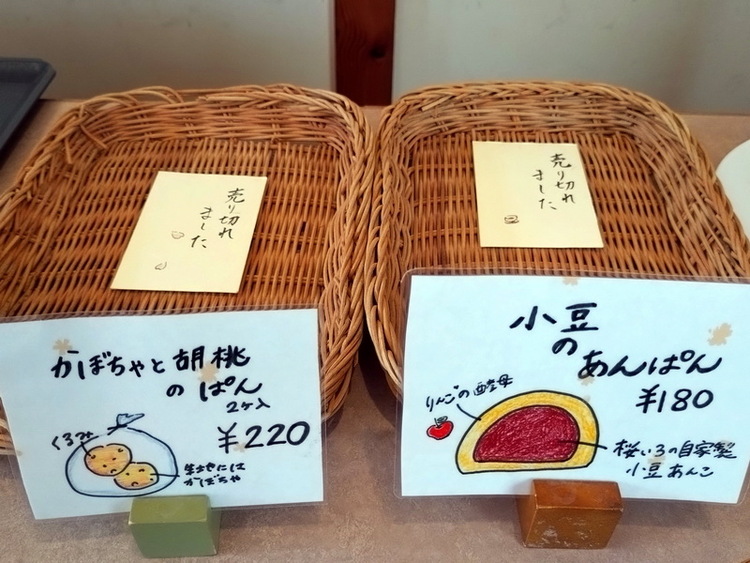 売り切れ
ました
売り切れ
ました
かぼちゃと胡桃
のぱん
2ヶ入
¥220
くるみ
生地には
かぼちゃ
小豆
の
あんぱん
¥180
りんごの酵母
桜いろの自家製
小豆あんこ